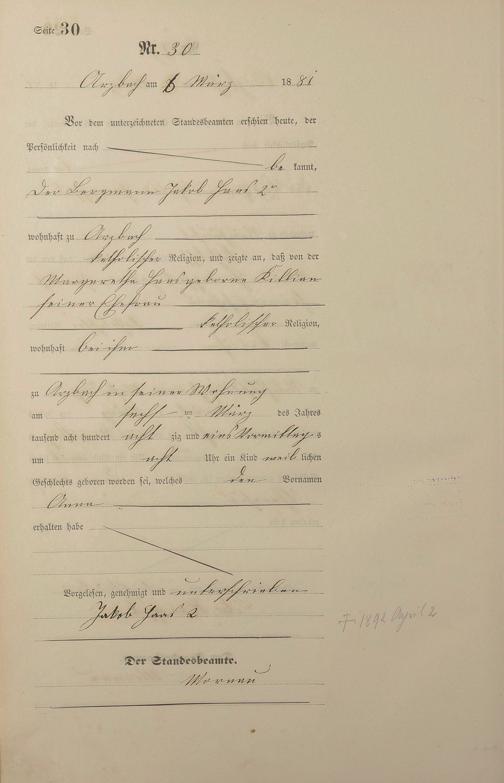 Seite 30
Nr. 30
Arzbach am 6 März 1881
Vor dem unterzeichneten Standesbeamten erschien heute, der
Persönlichkeit nach
be kannt,
Der Bergmann Jakob Haas 2r
wohnhaft zu Arzbach
katholischer Religion, und zeigte an, daß von der
Margaretha Haas geborne Killian
seiner Ehefrau
katholischer Religion,
wohnhaft bei ihm
zu Arzbach in seiner Wohnung
am sechst en März des Jahres
tausend acht hundert acht zig und eins Vormittags
um acht Uhr ein Kind weib lichen
Geschlechts geboren worden sei, welches den Vornamen
Anna
erhalten habe
Vorgelesen, genehmigt und unterschrieben
Jakob Haas 2
† 1892 April 2
Der Standesbeamte.